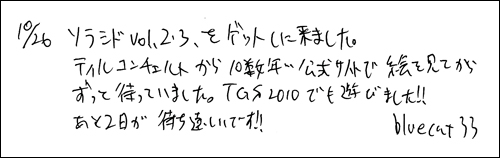 10/26 ソラシド vol.2・3、をゲットしに来ました。
テイルコンチェルトから10数年…公式サイトで絵を見てから
ずっと待っていました。TGS2010でも遊びました!!
あと2日が待ち遠しいです!!
bluecat33